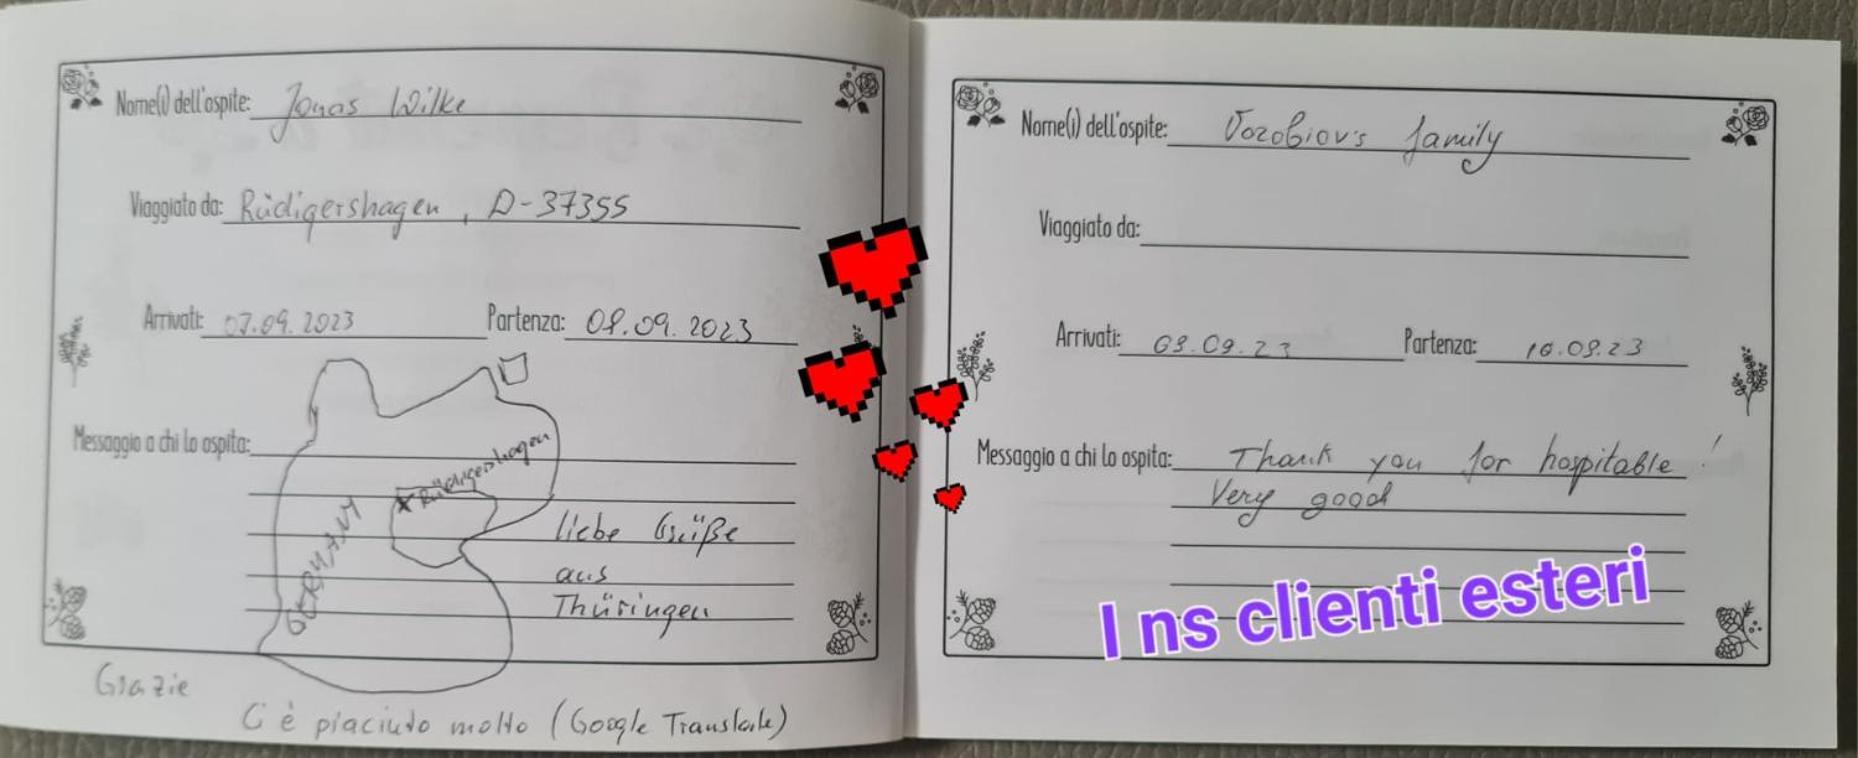 Nome(i) dell'ospite: Jonas Wilke
Viaggiato da: Rüdigershagen, D-37355
Arrivati: 07.09.2023 Partenza: 08.09.2023
Messaggio a chi lo ospita:
Rüdigershagen
GERMANY
liebe Grüße
aus
Thüringen
Grazie
C'è piaciuto molto (Google Translate)
Nome(i) dell'ospite: Vorobiov's family
Viaggiato da:
Arrivati: 09.09.23 Partenza: 10.09.23
Messaggio a chi lo ospita: Thank you for hospitable!
Very good
I ns clienti esteri